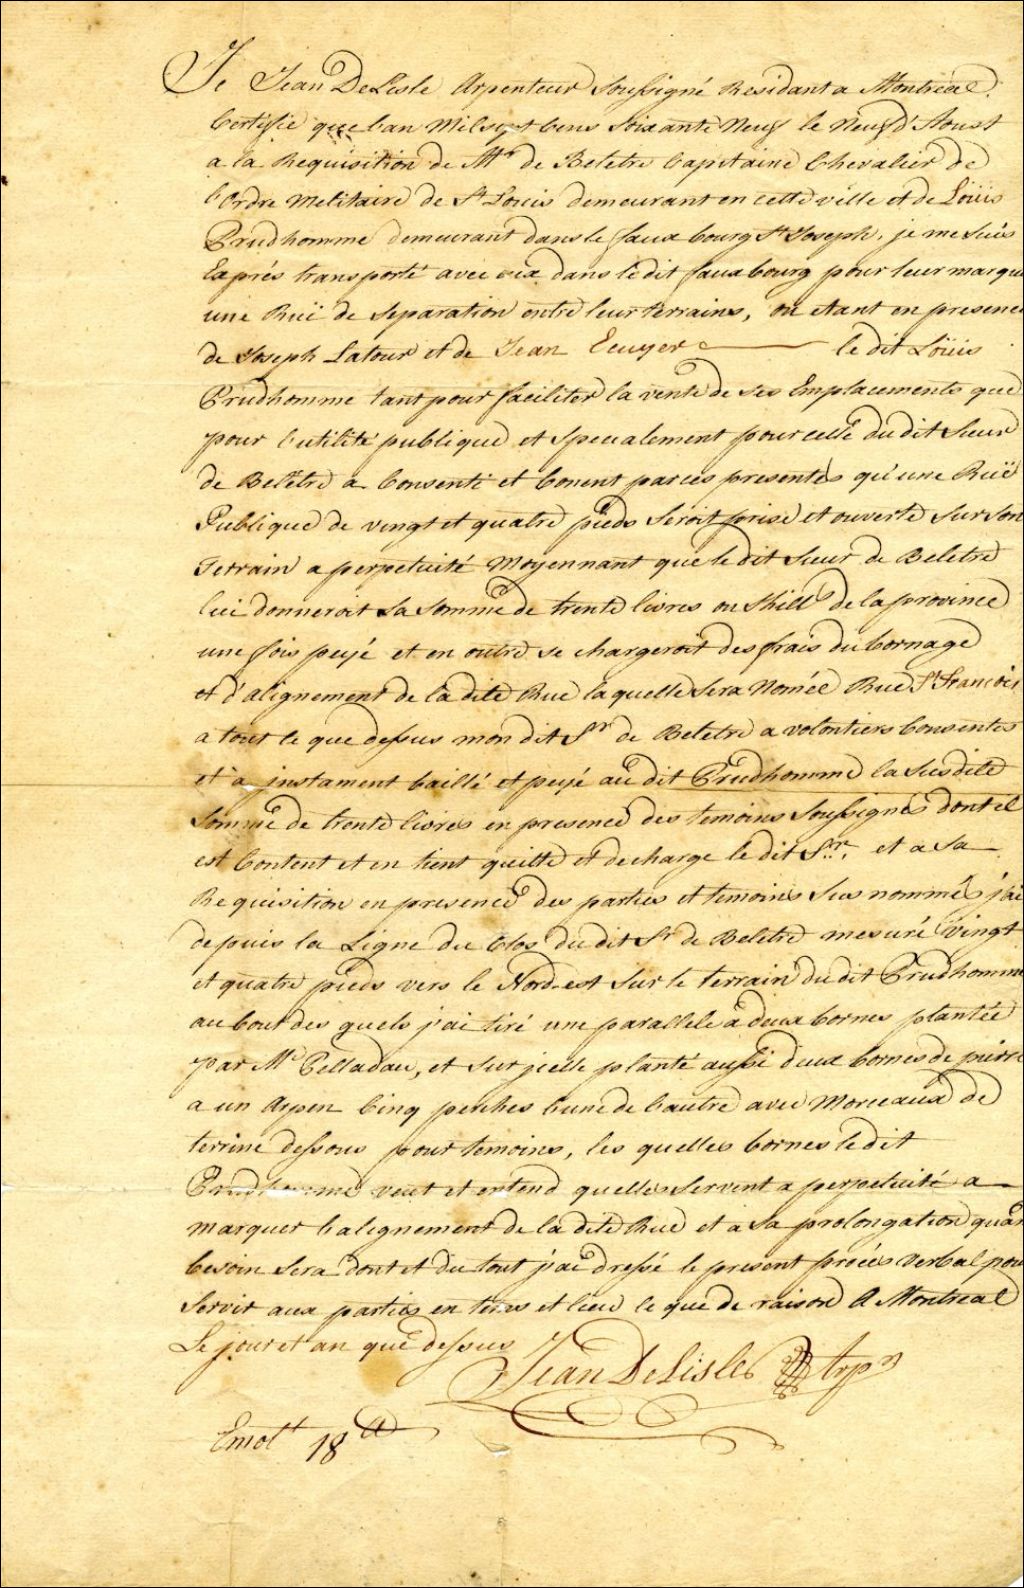 Je Jean DeLisle Arpenteur Soussigné Residant a Montréal.
Certifie que l'an Mil sept Cens Soixante Neuf le Neuf d'Aoust
a la Requisition de Mr de Beletre Capitaine Chevalier de
l'Ordre Melitaire de St Louis demeurant en cette ville et de Loüis
Prudhomme demeurant dans le faux bourg St Joseph, je me suis
Exprés transporté avec eux dans le dit faux bourg pour leur marqu
une Ruë de Separation entre leur terrains, ou etant en presence
de Joseph Latour et de Jean Ecuyer le dit Loüis
Prudhomme tant pour faciliter la vente de ses Emplacements que
pour l'utilité publique et specialement pour celle du dit Sieur
de Beletre a Consenti et Consent par ces presentes qu'une Ruë
Publique de vingt et quatre pieds Seroit prise et ouverte Sur Son
Terrain a perpetuité Moyennant que le dit Sieur de Beletre
lui donneroit la Somme de trente livres ou Shills de la province
une fois peyé et en outre se chargeroit des frais du bornage
et d'alignement de la dite Rue laquelle Sera Nomée Rue St Francois
a tout le que dessus mon dit Sr de Beletre a volontiers Consentes
et a instament baillé et peyé au dit Prudhomme la Susdite
Somme de trente livres en presence des temoins Soussignés dont il
est Content et en tient quitte et decharge le dit Sr. et a Sa
Requisition en presence des parties et temoins Sus nommés j'ai
depuis la Ligne du Clos du dit Sr de Beletre mesuré Vingt
et quatre pieds vers le Nord-est Sur le terrain du dit Prudhomme
au bout des quels j'ai tiré une parallele a deux bornes plantée
par Mr Pelladau, et Sur jcelle planté aussi deux bornes de pierre
a un Arpen Cinq perches l'une de l'autre avec Morceaux de
terrine dessous pour temoins, les quelles bornes le dit
Prudhomme veut et entend quelles Servent a perpetuité a
marquer l'alignement de la dite Rue et a Sa prolongation quan
besoin Sera dont et du tout j'ai dressé le present procés verbal pou
Servir aux parties en tems et lieu le que de raison A Montreal
Le jour et an que dessus
Jean DeLisle Arpr
Emolt 18 tt